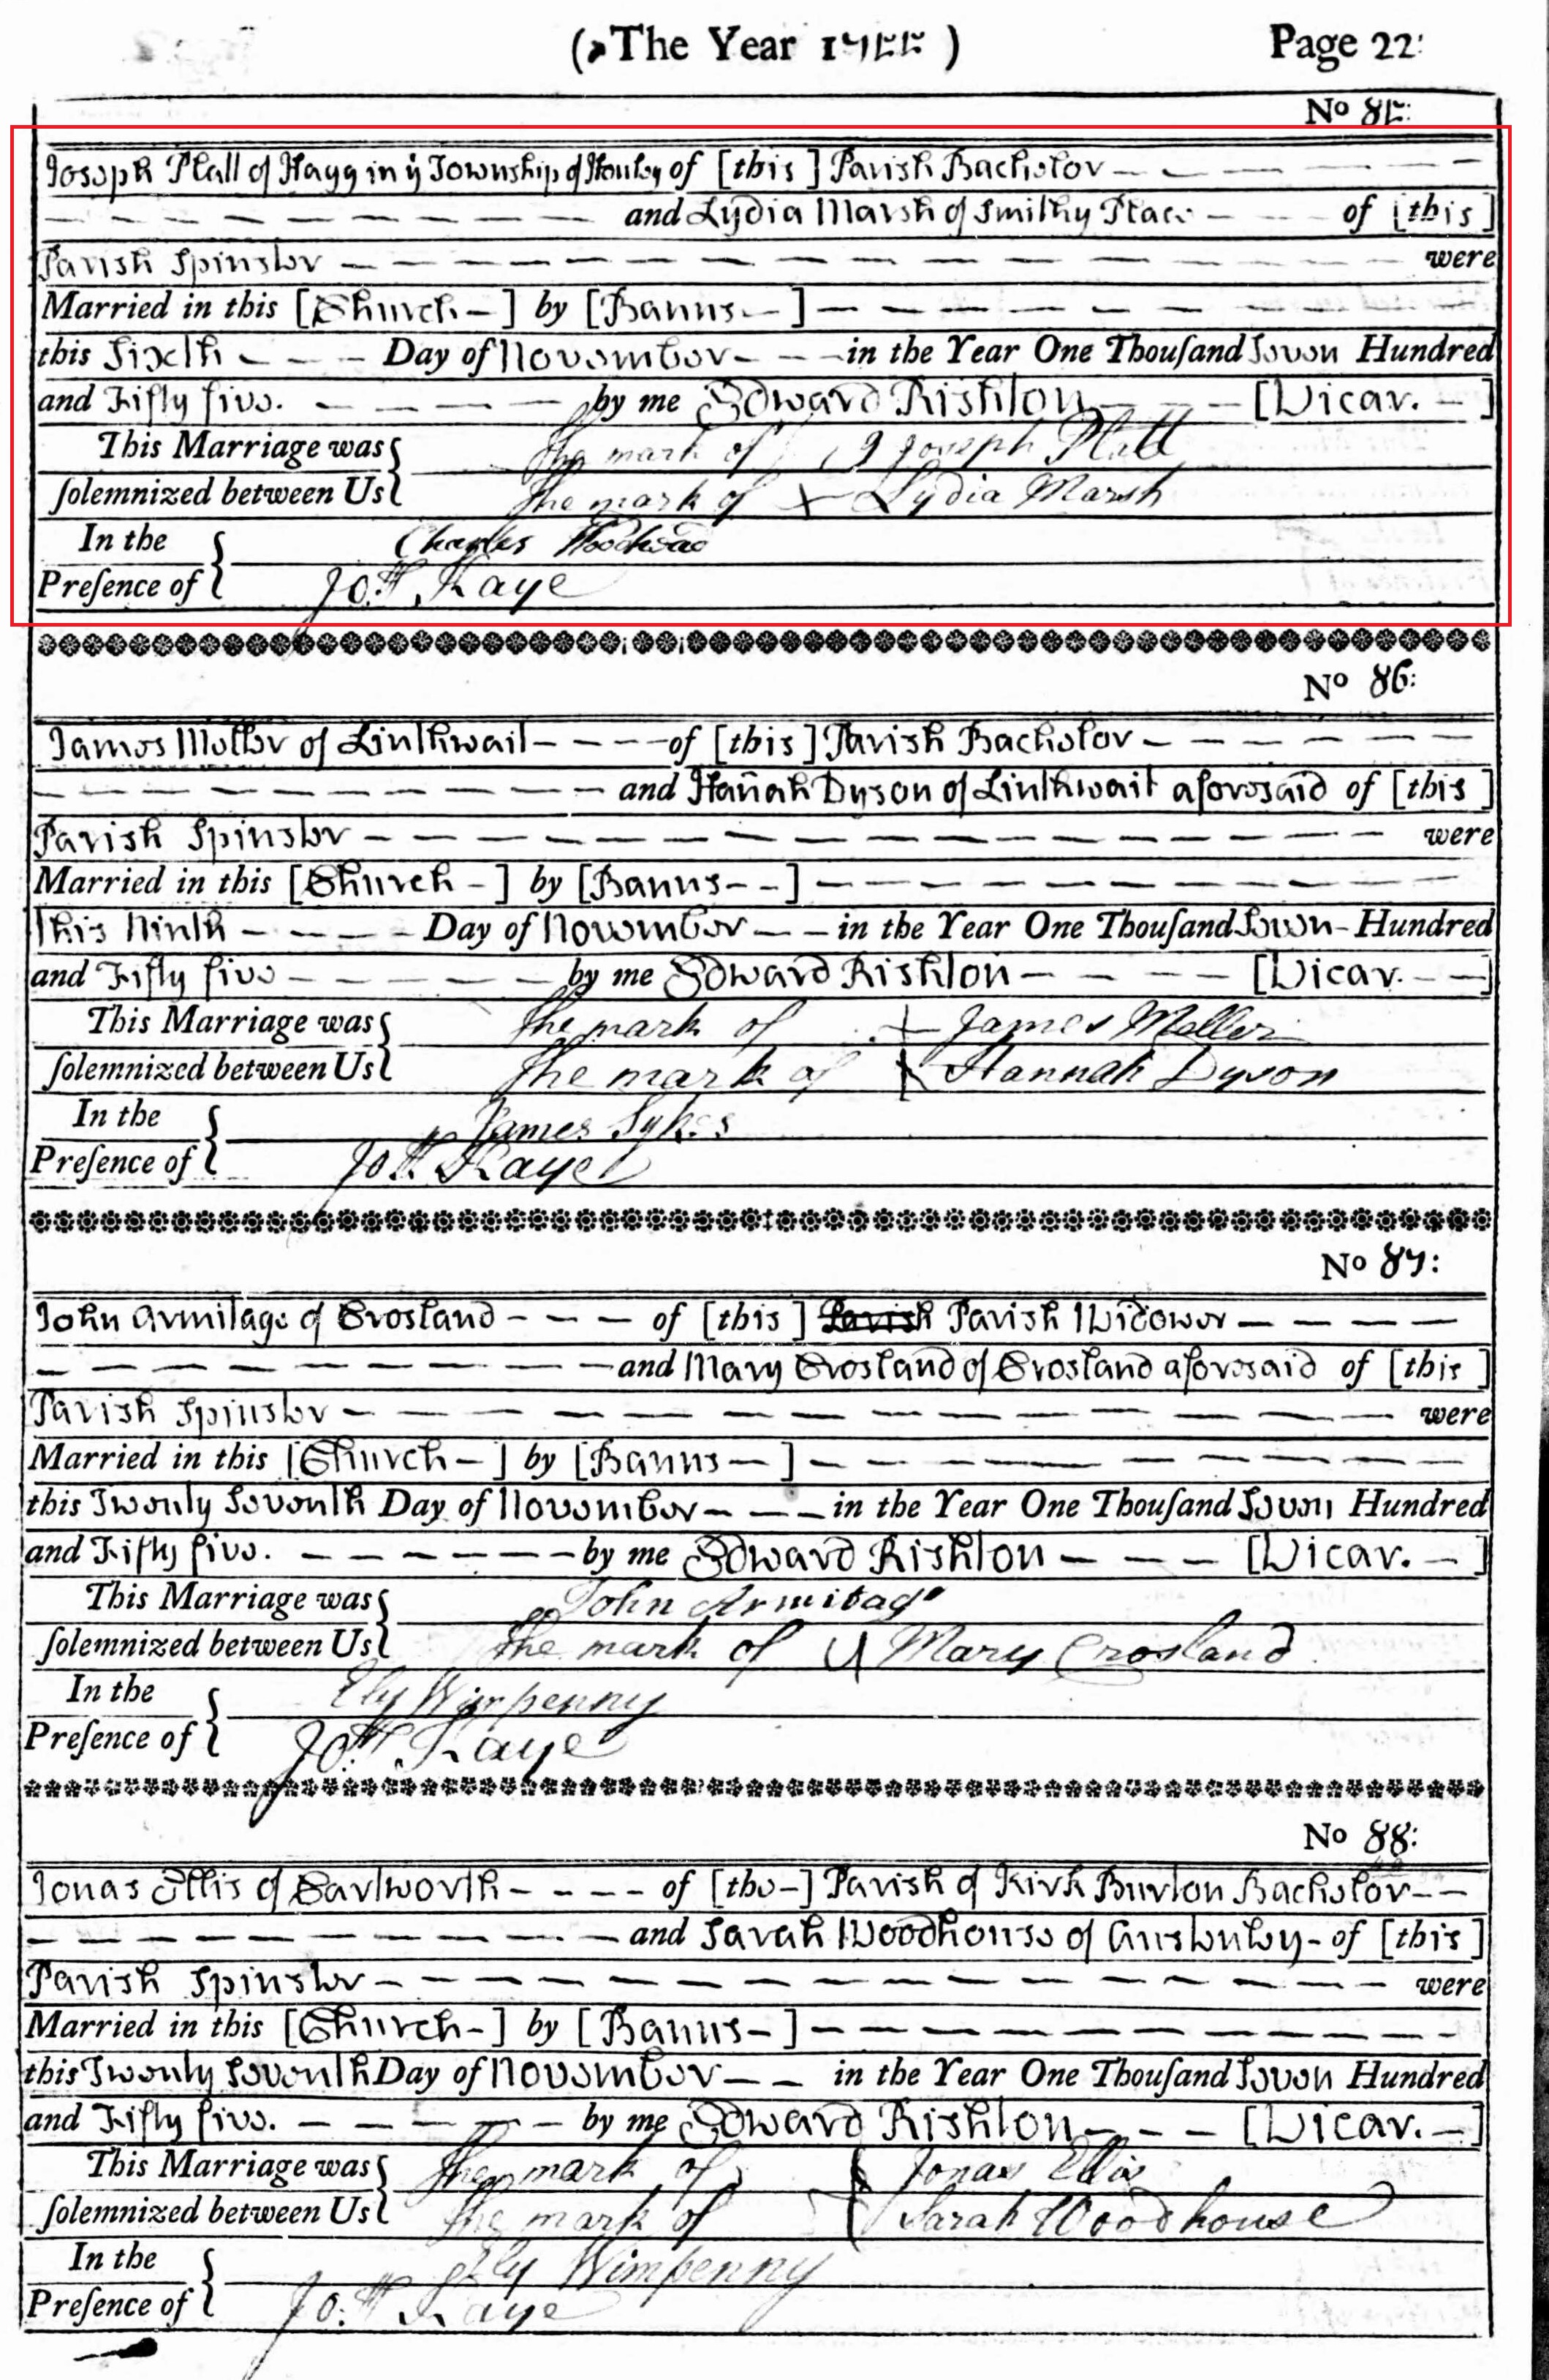 (The Year 1755) Page 22:
No 85:
Joseph Platt of Hagg in ÿ Township of Honley of [this] Parish Bachelor
and Lydia Marsh of Smithy Place of [this]
Parish Spinster were
Married in this [Church] by [Banns]
this Sixth Day of November in the Year One Thouſand Seven Hundred
and Fifty five. by me Edward Rishton [Vicar.]
This Marriage was the mark of Joseph Platt
ſolemnized between Us the mark of X Lydia Marsh
In the Charles
Preſence of Jo.n Kaye
No 86:
James Meller of Linthwait of [this] Parish Bachelor
and Hañah Dyson of Linthwait aforesaid of [this]
Parish Spinster were
Married in this [Church] by [Banns]
This Ninth Day of November in the Year One Thouſand Seven Hundred
and Fifty five by me Edward Rishton [Vicar.]
This Marriage was the mark of James Meller
ſolemnized between Us the mark of Hannah Dyson
In the James Sykes
Preſence of Jon Kaye
No 87:
John Armitage of Crosland of [this] Parish Parish Widower
and Mary Crosland of Crosland aforesaid of [this]
Parish Spinster were
Married in this [Church] by [Banns]
this Twenty Seventh Day of November in the Year One Thouſand Seven Hundred
and Fifty five. by me Edward Rishton [Vicar.]
This Marriage was John Armitage
ſolemnized between Us the mark of Mary Crosland
In the Ely Wimpenny
Preſence of Jo.n Kaye
No 88:
Jonas Ellis of Cartworth of [the] Parish of Kirk Burton Bachelor
and Sarah Woodhouse of Austonley of [this]
Parish Spinster were
Married in this [Church] by [Banns]
this Twenty Seventh Day of November in the Year One Thouſand Seven Hundred
and Fifty five. by me Edward Rishton [Vicar.]
This Marriage was the mark of Jonas Ellis
ſolemnized between Us the mark of Sarah Woodhouse
In the Ely Wimpenny
Preſence of Jo.n Kaye